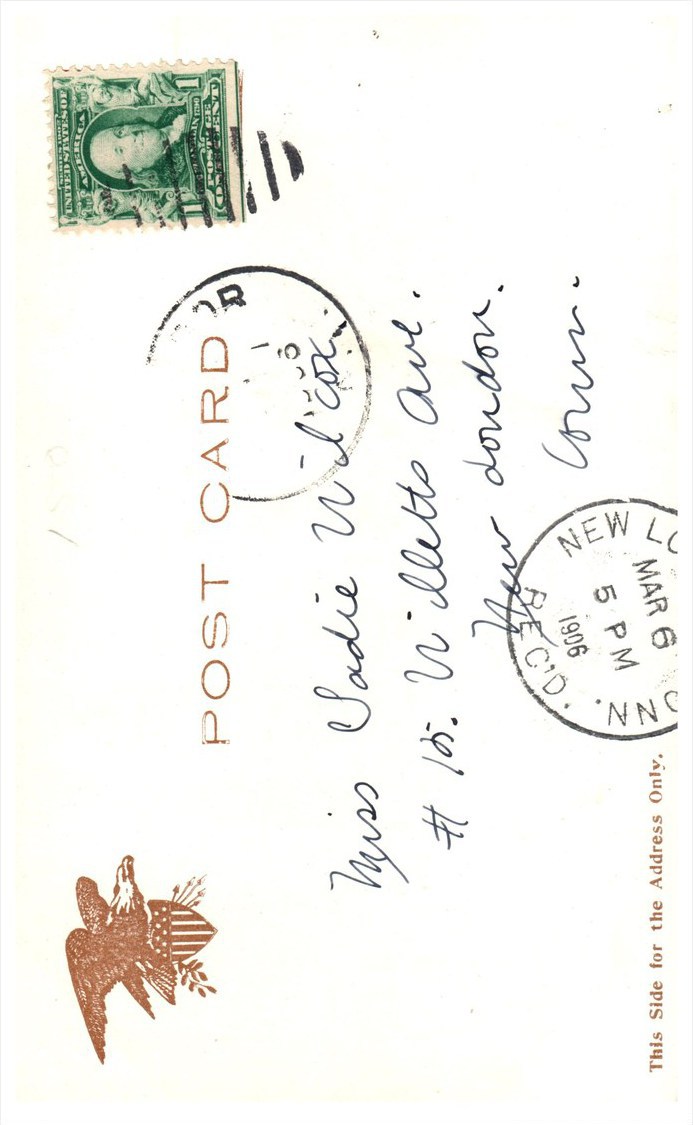 SERIES 1902
UNITED STATES OF
AMERICA
POSTAGE
ONE CENT
1 1
POST CARD
Miss Sadie Wilcox.
# 15. Willetts Ave.
New London.
Conn.
NEW LO
MAR 6
5 PM
1906
REC'D.
ONN.
This Side for the Address Only.